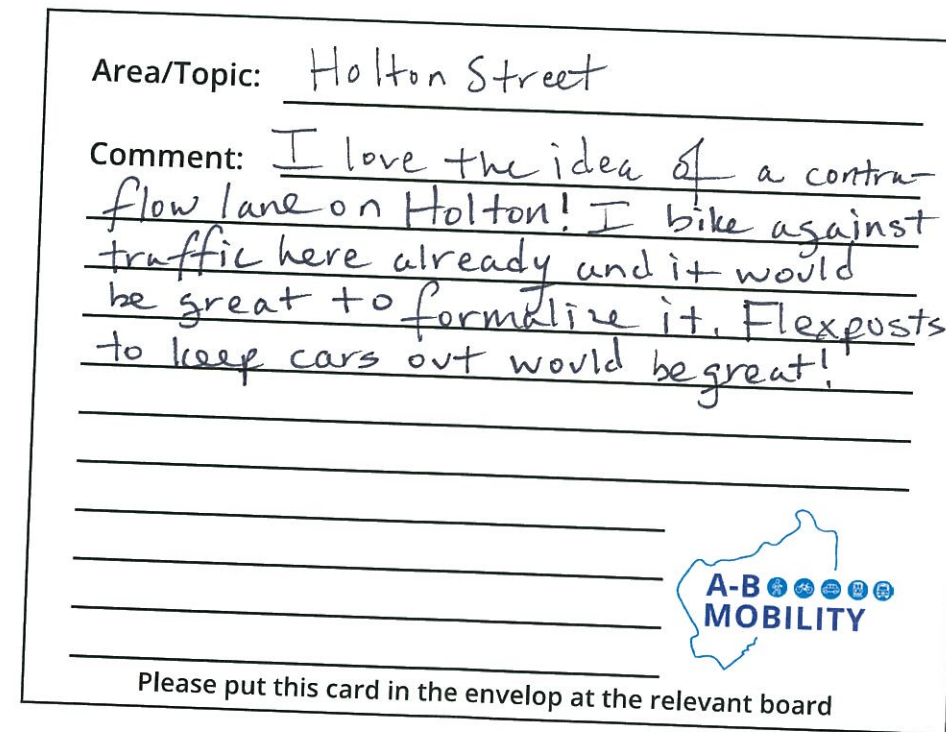 Area/Topic: Holton Street
Comment: I love the idea of a contra-
flow lane on Holton! I bike against
traffic here already and it would
be great to formalize it. Flexposts
to keep cars out would be great!
A-B
MOBILITY
Please put this card in the envelop at the relevant board